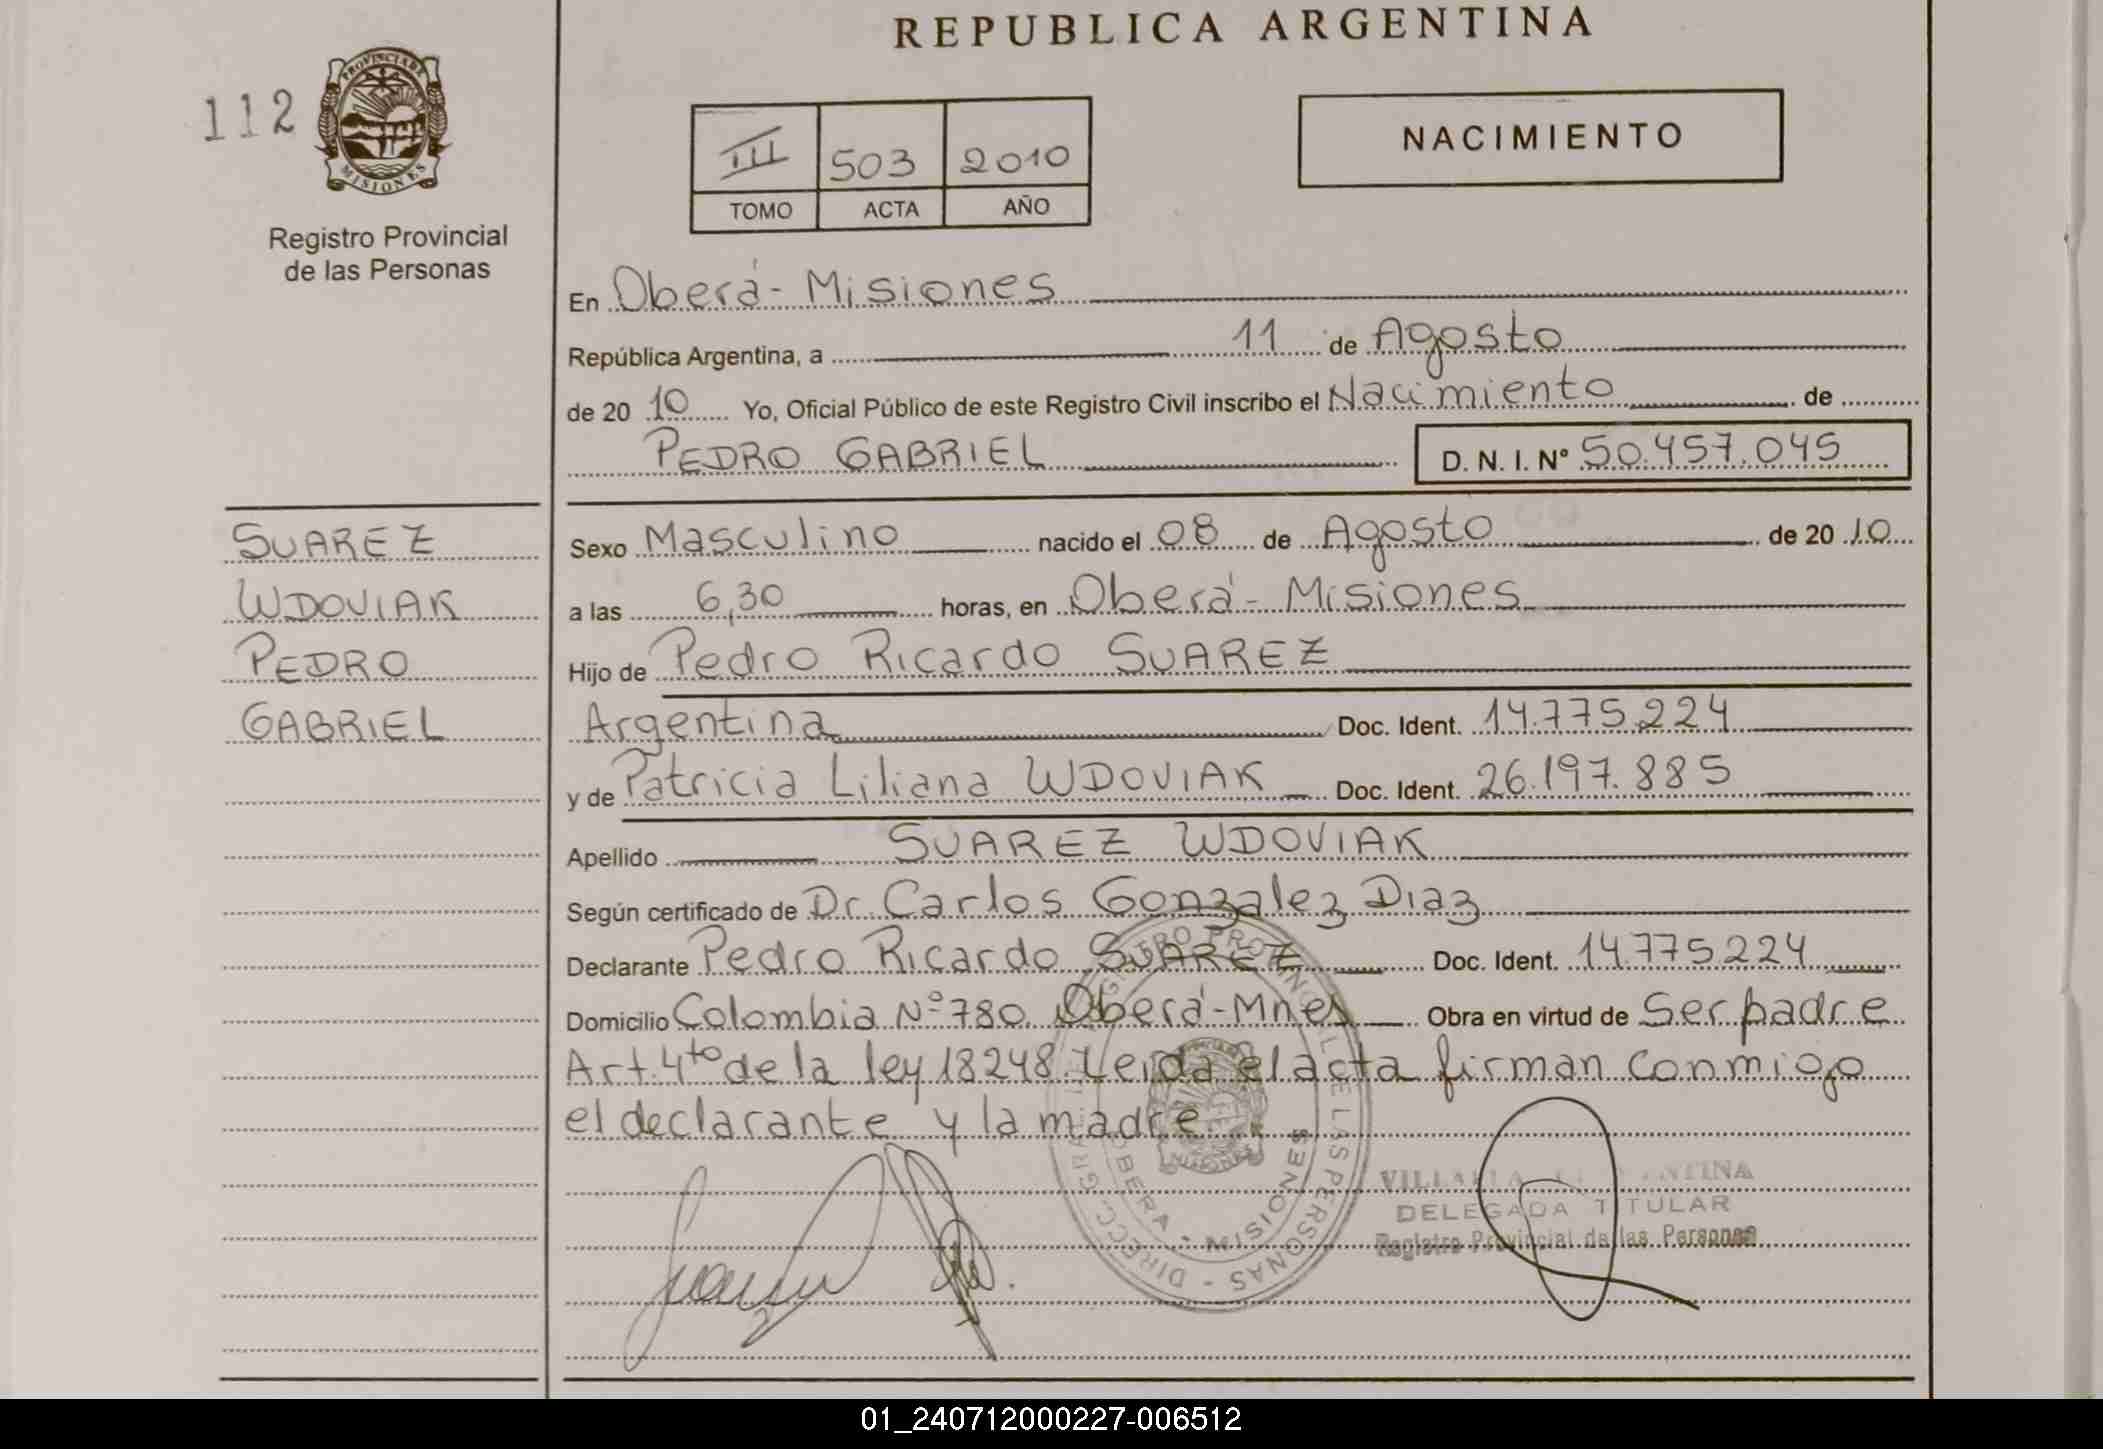 REPUBLICA ARGENTINA
112
PROVINCIA DE
MISIONES
Registro Provincial
de las Personas
III 503 2010
TOMO ACTA AÑO
NACIMIENTO
En Oberá - Misiones
República Argentina, a 11 de Agosto
de 20 10 Yo, Oficial Público de este Registro Civil inscribo el Nacimiento de
PEDRO GABRIEL D. N. I. Nº 50.457.045
SUAREZ
WDOVIAK
PEDRO
GABRIEL
Sexo Masculino nacido el 08 de Agosto de 20 10
a las 6,30 horas, en Oberá - Misiones
Hijo de Pedro Ricardo SUAREZ
Argentina Doc. Ident. 14.775.224
y de Patricia Liliana WDOVIAK Doc. Ident. 26.197.885
Apellido SUAREZ WDOVIAK
Según certificado de Dr. Carlos Gonzalez Diaz
Declarante Pedro Ricardo SUAREZ Doc. Ident. 14.775.224
Domicilio Colombia Nº 780. Oberá - Mnes Obra en virtud de Ser padre
Art. 4to de la ley 18248. Leida el acta firman conmigo
el declarante y la madre
DIRECC. GRAL. REGISTRO PROVINCIAL DE LAS PERSONAS
OBERA - MISIONES
DELEGADA TITULAR
Registro Provincial de las Personas
01_240712000227-006512